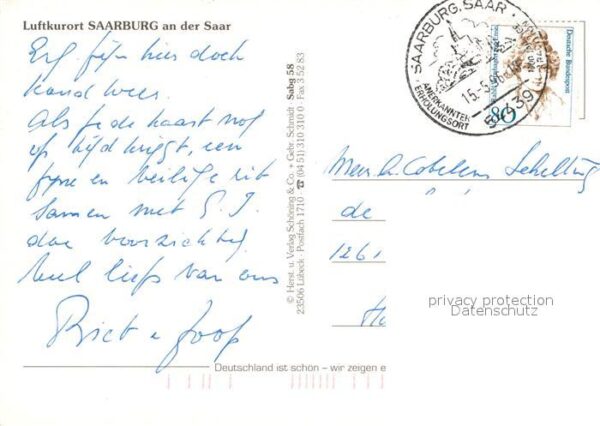 Luftkurort SAARBURG an der Saar
Erg fijn hier doch
hand weer.
Als je de kaart nog
op tijd krijgt, een
fijne en veilige rit
samen met G. J.
doe voorzichtig
veel liefs van ons
Riet en Joop
© Herst. u. Verlag Schöning & Co. + Gebr. Schmidt Sabg 58
23506 Lübeck · Postfach 1710 · ☎ (04 51) 310 310 0 · Fax 3 52 83
SAARBURG, SAAR
ANERKANNTER
ERHOLUNGSORT
54439
Deutsche Bundespost
80
de
1261
privacy protection
Datenschutz
Deutschland ist schön – wir zeigen e